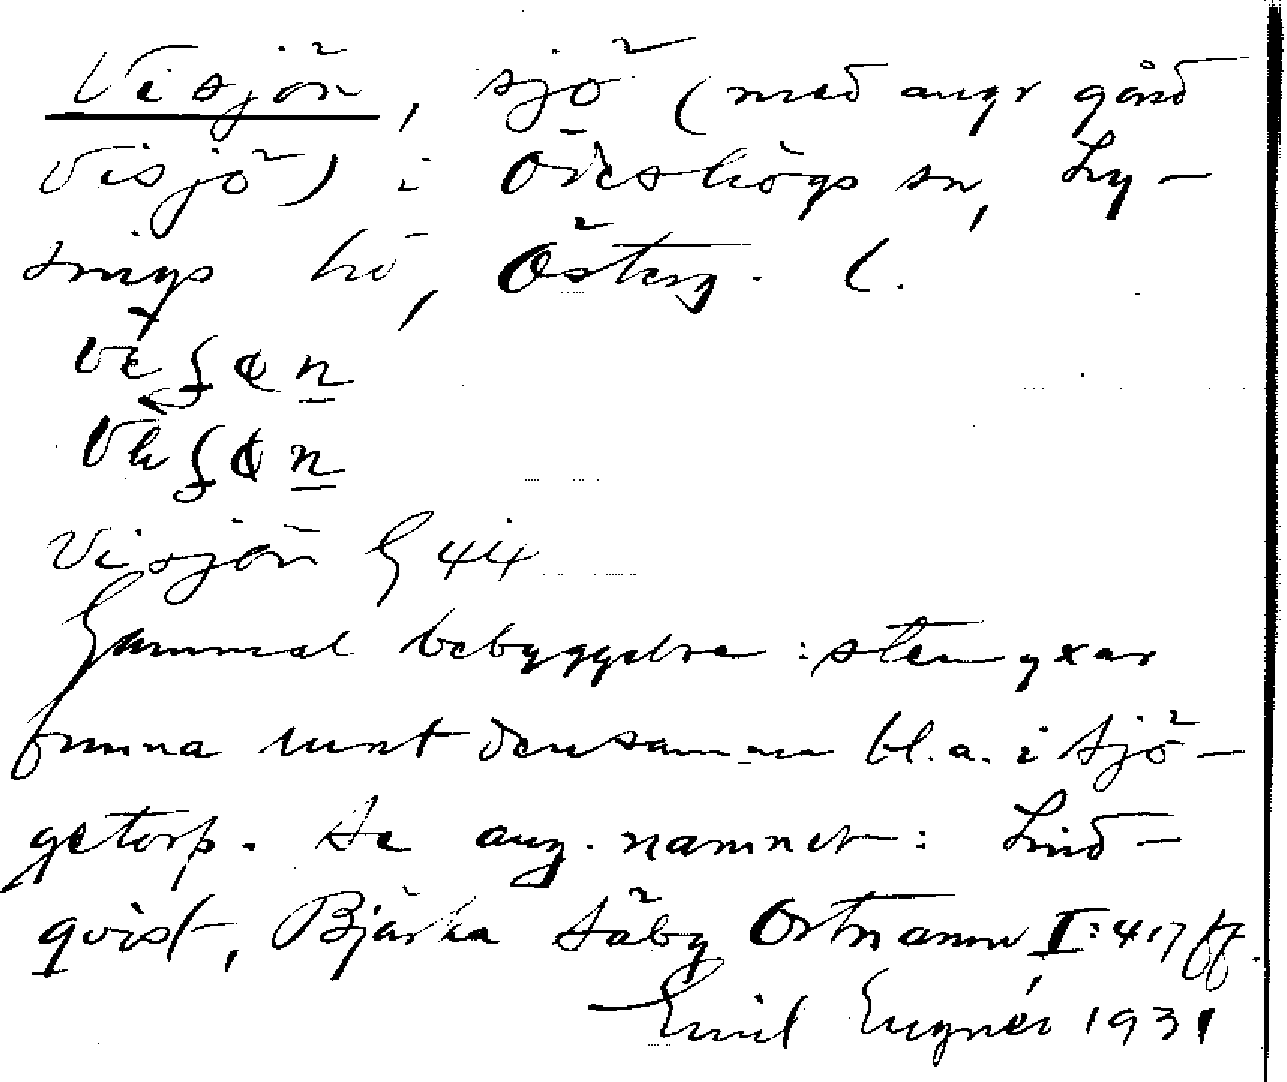 Visjön, sjö (med angr gård
Visjö) i Ödeshögs sn, Ly-
sings hd, Österg. l.
Visjön G 44
Gammal bebyggelse: stenyxar
funna runt densamma bl.a. i Sjö-
getorp. Se ang. namnet: Lind-
qvist, Bjärka Säby Ortnamn I:417 ff.
Emil Eugnér 1931